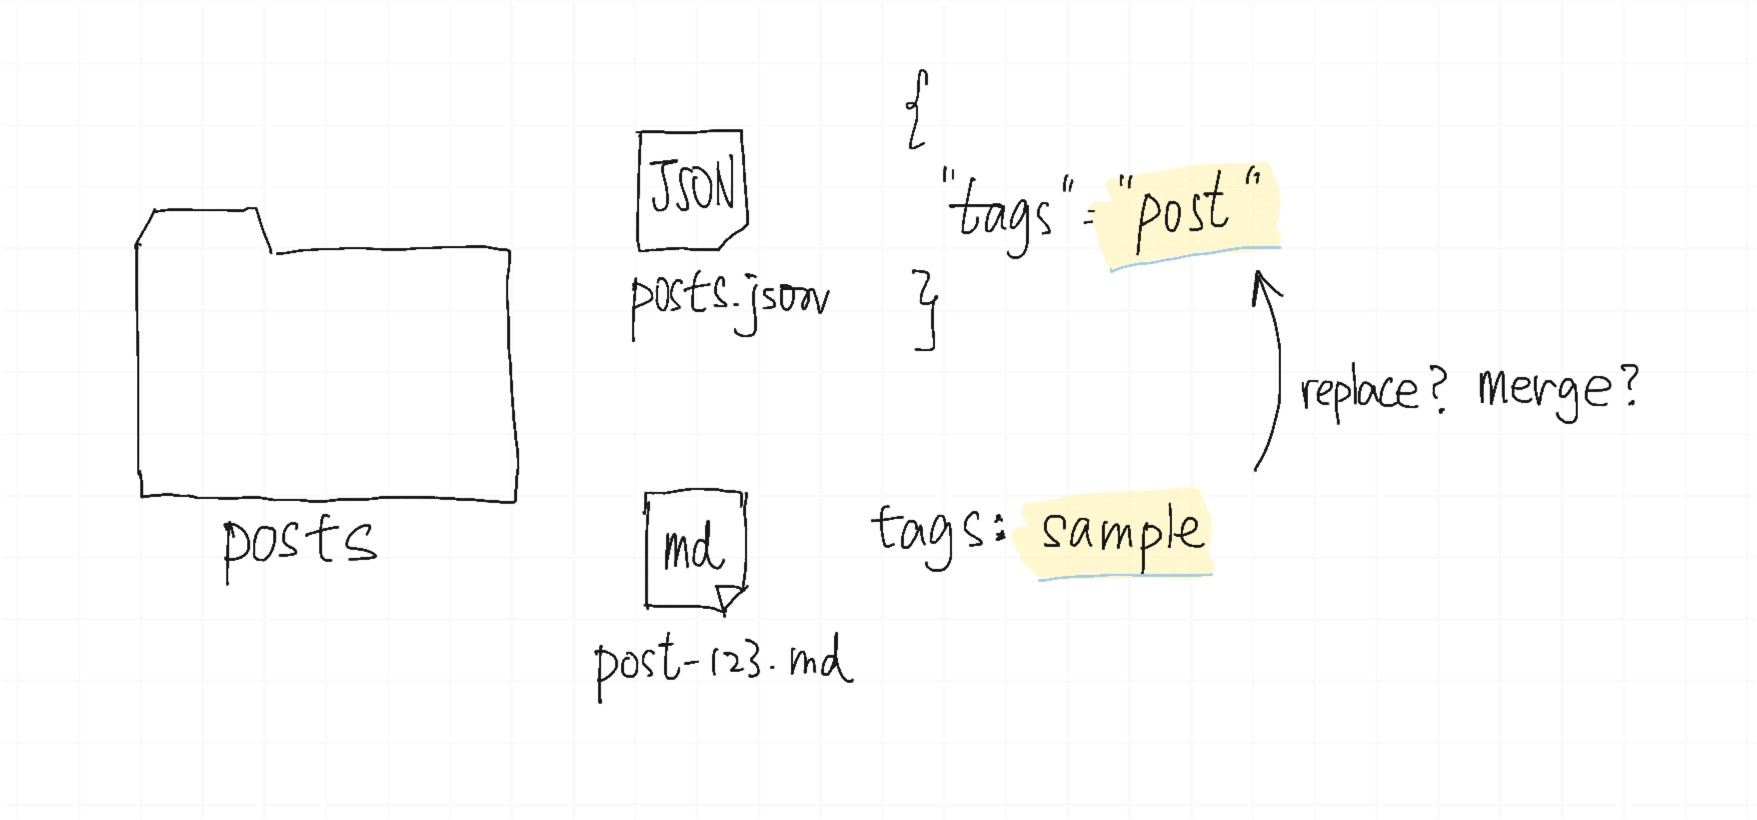 posts
JSON
posts.json
{
"tags" = "post"
}
replace? merge?
md
post-123.md
tags: sample